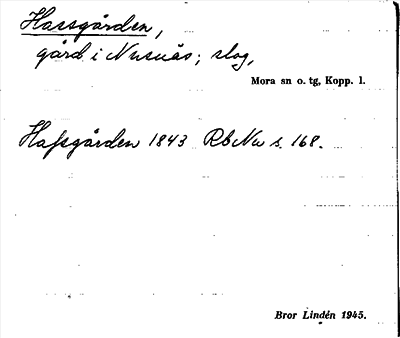 Hassgården,
gård i Nusnäs; slog,
Mora sn o. tg, Kopp. l.
Hassgården 1843 RbNu s. 168.
Bror Lindén 1945.